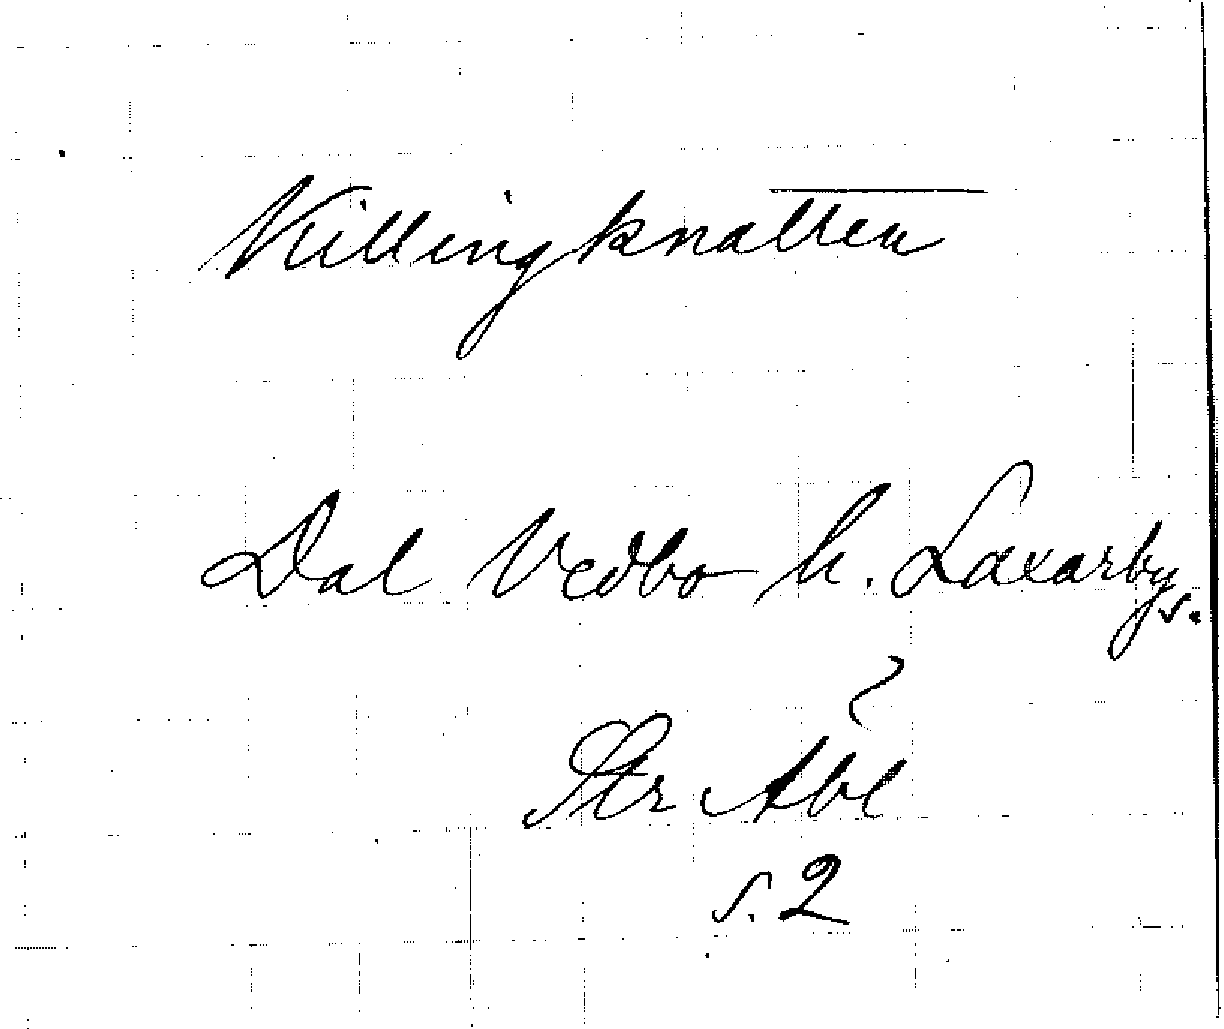 Killingknatten
Dal Vedbo h. Laxarby
s.
Str Åbl
s. 2